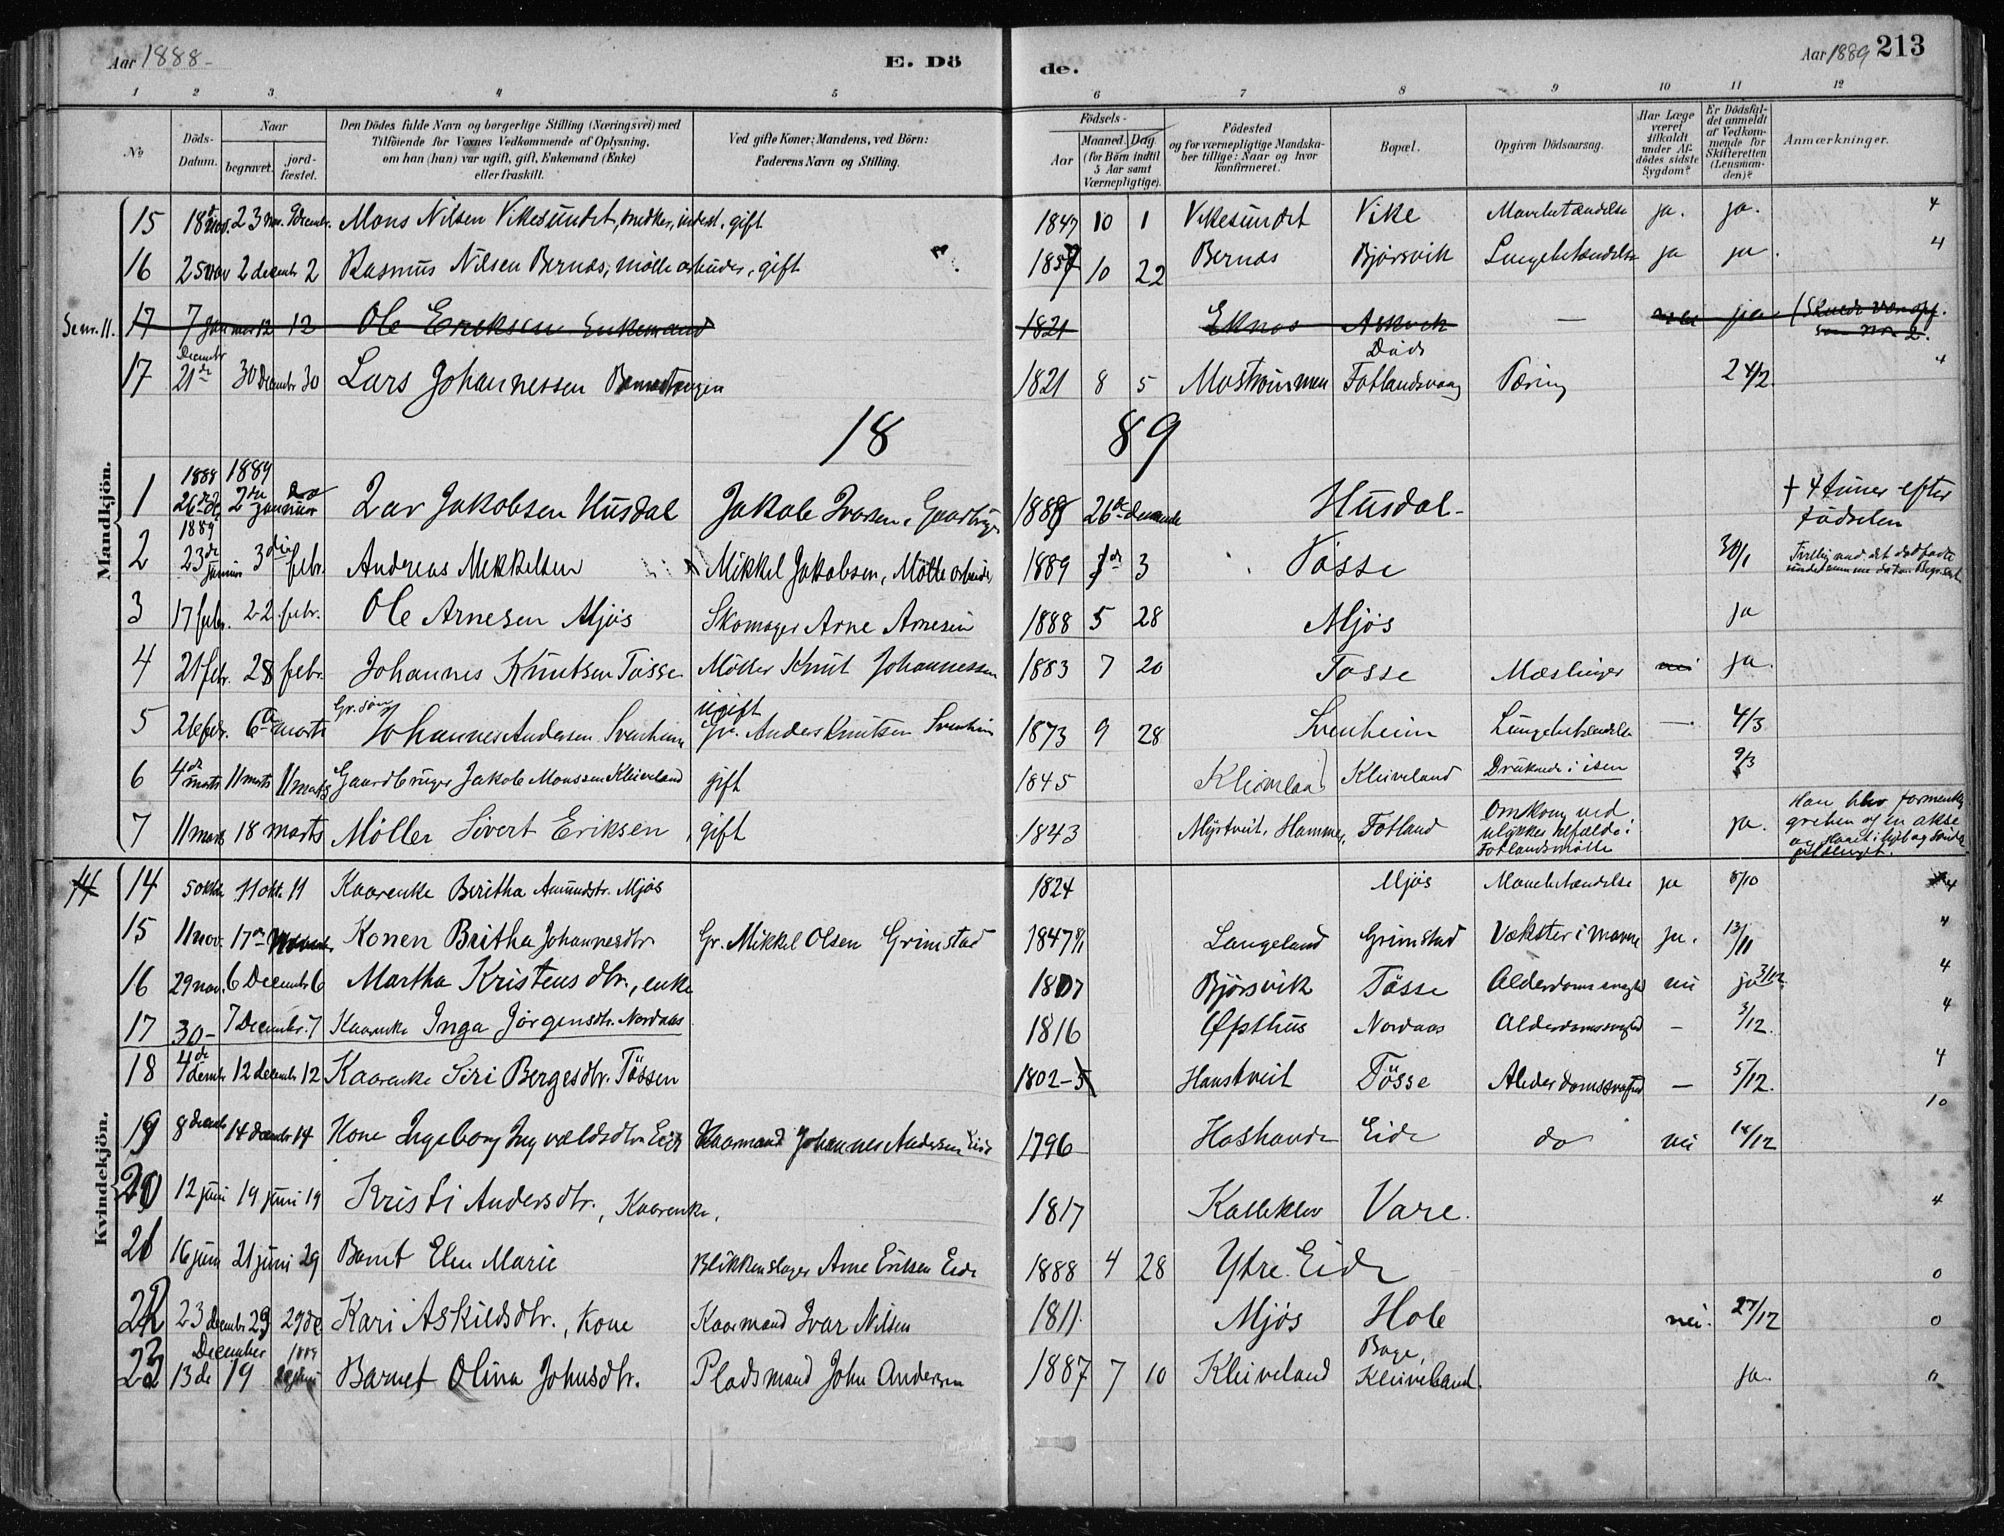 Aar 1888-
E. Dö
de.
Aar 1889 213
1 2 3 4 5 6 7 8 9 10 11 12
No
Döds-Datum.
Naar
begravet.
jordfæstet.
Den Dödes fulde Navn og borgerlige Stilling (Næringsvei) med
Tilföiende for Voxnes Vedkommende af Oplysning,
om han (hun) var ugift, gift, Enkemand (Enke)
eller fraskilt.
Ved gifte Koner: Mandens, ved Börn:
Faderens Navn og Stilling.
Födsels-
Aar
Maaned. Dag.
(for Börn indtil
5 Aar samt
Værnepligtige).
Födested
og for værnepligtige Mandskaber tillige: Naar og hvor
konfirmeret.
Bopæl.
Opgiven Dödsaarsag.
Har Læge
været
tilkaldt
under Afdödes sidste
Sygdom?
Er Dödsfaldet anmeldt
af Vedkommende for
Skifteretten
(Lensmanden)?
Anmærkninger.
Mandkjön.
15 18 nov. 23 nov. Mons Nilsen Vikesundet, gift 1847 10 1 Vikesundet Vike Mavebetændelse ja. ja. 4
16 25 nov 2 decembr 2 Rasmus Nilsen Bernæs, mölle arbeider, gift 1857 10 22 Bernæs Bjørsvik Lungebetændelse ja ja. 4
17 7 januar 12 12 Ole Eriksen Enkemand 1821 Eknæs Askvik — nei ja som nr. 2.
17 Decembr 21de 30 Decembr 30 Lars Johannessen 1821 8 5 Mostrømmen Død Fotlandsvaag Tæring 24/2 4
18 89
1 1888 26de de 1889 2de januar Ivar Jakobsen Husdal Jakob Ivarsen, Gaardbruger 1888 26de decembr Husdal † 4 timer efter
födselen
2 1889 23de januar 3die febr. Andreas Mikkelsen Mikkel Jakobsen, Mölle arbeider 1889 3 Tösse 30/1
3 17 febr. 22 febr. Ole Arnesen Mjös Skomager Arne Arnesen 1888 5 28 Mjös ja
4 21 febr. 28 febr. Johannes Knutsen Tösse Möller Knut Johannessen 1883 7 20 Tosse Mæslinger nei ja.
5 26 febr. 6te marts Gr. søn Johannes Andersen Svenheim ugift Gr. Anders Knutsen Svenheim 1873 9 28 Svenheim Lungebetændelse — 4/3
6 4de marts 11 marts 11 marts Gaardbruger Jakob Monssen Kleiveland gift 1845 Kleiveland Kleiveland Druknede i isen 9/3
7 11 marts 18 marts Möller Sivert Eriksen, gift 1843 Myrtveit, Hammer, Fotland Omkom ved
ulykkes tilfælde i
Fotlandsmölle ja. Han blev
greben af en akse
Kvindekjön.
14 14 5 okto 11 okt. 11 Kaarenke Beritha Amundsdtr. Mjös 1824 Mjös Mavebetændelse ja 8/10 4
15 11 nov. 17de Konen Britha Johannesdtr. Gr. Mikkel Olsen Grimstad 1847 Langeland Grimstad Vækster i maven ja. 13/11 4
16 29 nov. 6 Decembr 6 Martha Kristensdtr., enke 1807 Bjørsvik Tösse Alderdomssvaghed nei ja 3/12 4
17 30- 7 Decembr. 7 Kaarenke Inga Jörgensdtr. Nordaas 1816 Øfsthus Nordaas Alderdomssvaghed — 3/12. 4
18 4de decembr 12 decembr 12 Kaarenke Siri Bergesdtr. Tössen 1802-5 Hanstveit Tösse Alderdomssvaghed — 5/12. 4
19 8 decembr 14 decembr 14 Kone Ingeborg Ingvaldsdtr. Eide Kaarmand Johannes Andersen Eide 1796 Eide do nei 14/12 10
20 12 juni 19 juni 19 Kristi Andersdtr., Kaarenke. 1817 Kalleklev Vare. 4
21 16 juni 21 juni 29 Barnet Elen Marie Blikkenslager Arne Eriksen Eide 1888 4 28 Ytre Eide 0
22 23 decembr 29 29de Kari Askildsdtr., Kone Kaarmand Ivar Nilsen 1811. Mjös Hole nei. 27/12 0
23 December 13de 19 1889 Barnet Olina Johnsdtr. Pladsmand John Andersen 1887 7 10 Kleiveland Kleiveland. ja. "